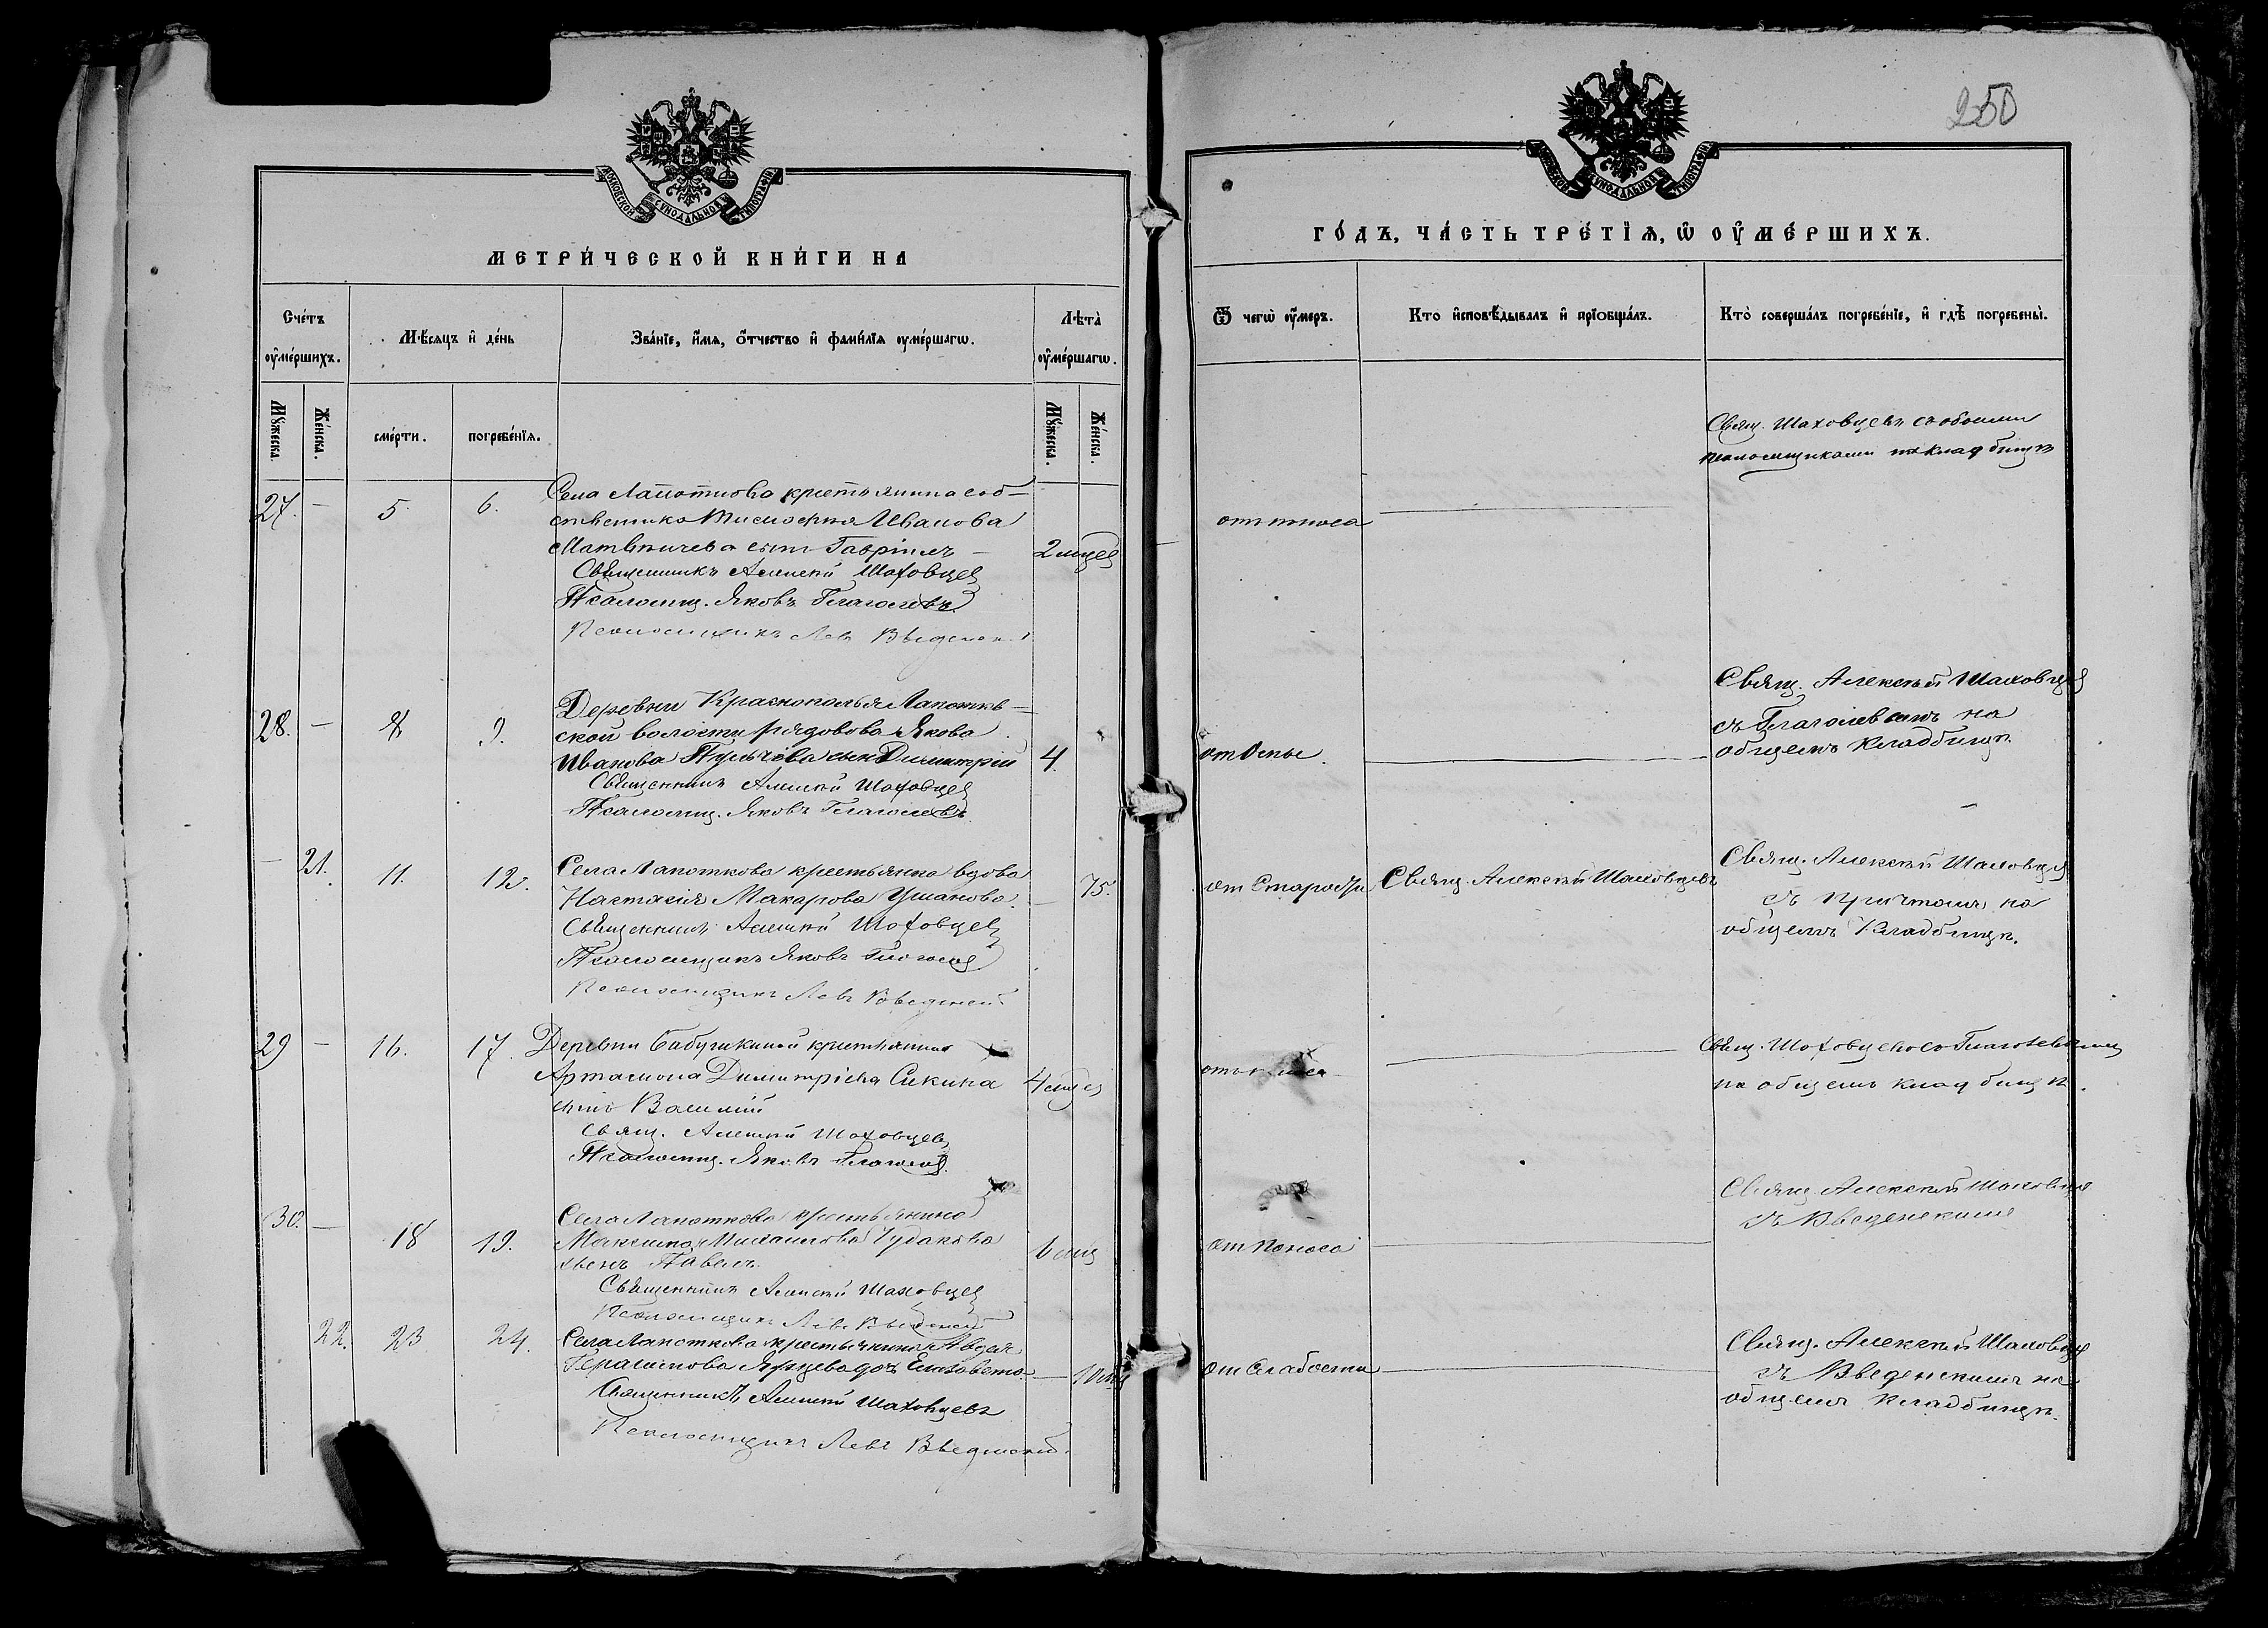 МОСКОВСКОЙ СѴНОДАЛЬНОЙ ТИПОГРАФІИ
МЕТРИ́ЧЕСКОЙ КНИ́ГИ НА
Сче́тъ оу҆ме́ршихъ.
Мѣ́сяцъ и҆ де́нь
Зва́нїе, и҆́мѧ, ѻ҆́тчество и҆ фами́лїѧ оуме́ршагѡ.
Лѣта̀ оу҆ме́ршагѡ.
Мꙋ́жеска.
Же́нска.
сме́рти.
погребе́нїѧ.
Мꙋ́жеска.
Же́нска.
27. — 5. 6. Села Лапоткова крестьянина соб-
ственика Тимофея Иванова
сынъ Гавріилъ — 2 мцев
Священникъ Алексѣй Шаховцев
Псаломщ. Яковъ Глаголевъ
Псаломщикъ Левъ Введенск.
28. — 8 9. Деревни Краснополья Лапотков-
ской волости рядовова Якова
Иванова сын Димитрій 4.
Священникъ Алексѣй Шаховцев
Псаломщ. Яковъ Глаголевъ
— 21. 11. 12. Села Лапоткова крестьянка вдова
Настасія Макарова Ушакова. — 75.
Священникъ Алексѣй Шаховцев
Псаломщикъ Яковъ Глаголев
Псаломщикъ Левъ Введенскій
29 — 16. 17. Деревни Бабушкиной крестьянина
Артамона Димитріева Сикина 4 мцев
сынъ Василий
Свящ. Алексѣй Шаховцев
Псаломщ. Яковъ Глаголев
30. — 18 19. Села Лапоткова крестьянина
Максима Михаилова Чудакова
сынъ Павелъ
Священникъ Алексѣй Шаховцев
Псаломщикъ Левъ Введенскій
22. 23 24. Села Лапоткова крестьянина Авдея
Герасимова Ярцева доч Елизавета —
Священникъ Алексѣй Шаховцевъ
Псаломщикъ Левъ Введенский.
250
МОСКОВСКОЙ СѴНОДАЛЬНОЙ ТИПОГРАФІИ
ГО́ДЪ, ЧА́СТЬ ТРЕ́ТЇѦ, Ѡ҆ ОУ҆МЕ́РШИХЪ.
Ѿ чегѡ̀ оу҆́меръ.
Кто̀ и҆сповѣ́дывалъ и҆ прїобща́лъ.
Кто̀ соверша́лъ погребе́нїе, и҆ гдѣ̀ погребены̀.
Свящ. Шаховцевъ с обоими
псаломщиками на кладбищѣ
от поноса
Свящ. Алексѣй Шаховцев
съ Глаголевымъ на
общемъ кладбищѣ.
от Оспы.
от Старости Свящ. Алексѣй Шаховцевъ
Свящ. Алексѣй Шаховцев
съ причтомъ на
общемъ кладбищѣ.
отъ поноса
Свящ. Шаховцевъ со Глаголевымъ
на общемъ кладбищѣ.
от поноса
Свящ Алексѣй Шаховцев
съ Введенскимъ
от Слабости
Свящ. Алексѣй Шаховцев
съ Введенскимъ на
общемъ кладбищѣ.